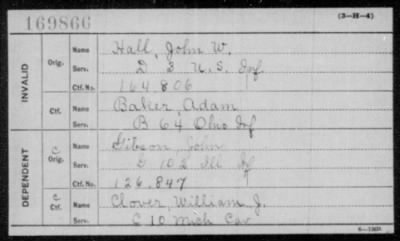 169866
(3-H-4)
INVALID
Orig.
Name Hall, John W.
Serv. D 3 U.S. Inf.
Ctf. No. 164806
Ctf.
Name Baker, Adam
Serv. B 64 Ohio Inf
DEPENDENT
C Orig.
Name Gibson, John
Serv. 102 Ill Inf
Ctf. No. 126.847
C Ctf.
Name Clover, William J.
Serv. C 10 Mich Cav